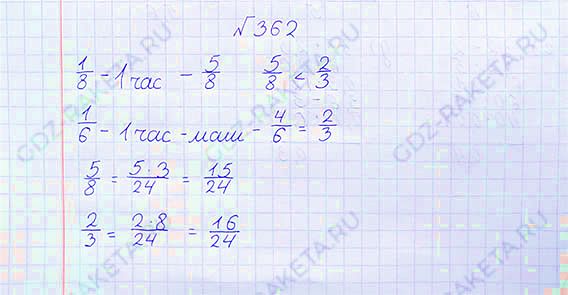 √362
1/8 - 1 час - 5/8  5/8 < 2/3
1/6 - 1 час - маш - 4/6 = 2/3
5/8 = 5·3/24 = 15/24
2/3 = 2·8/24 = 16/24
GDZ-RAKETA.RU
GDZ-RAKETA.RU
GDZ-RAKETA.RU
GDZ-RAKETA.RU
GDZ-RAKETA.RU
GDZ-RAKETA.RU